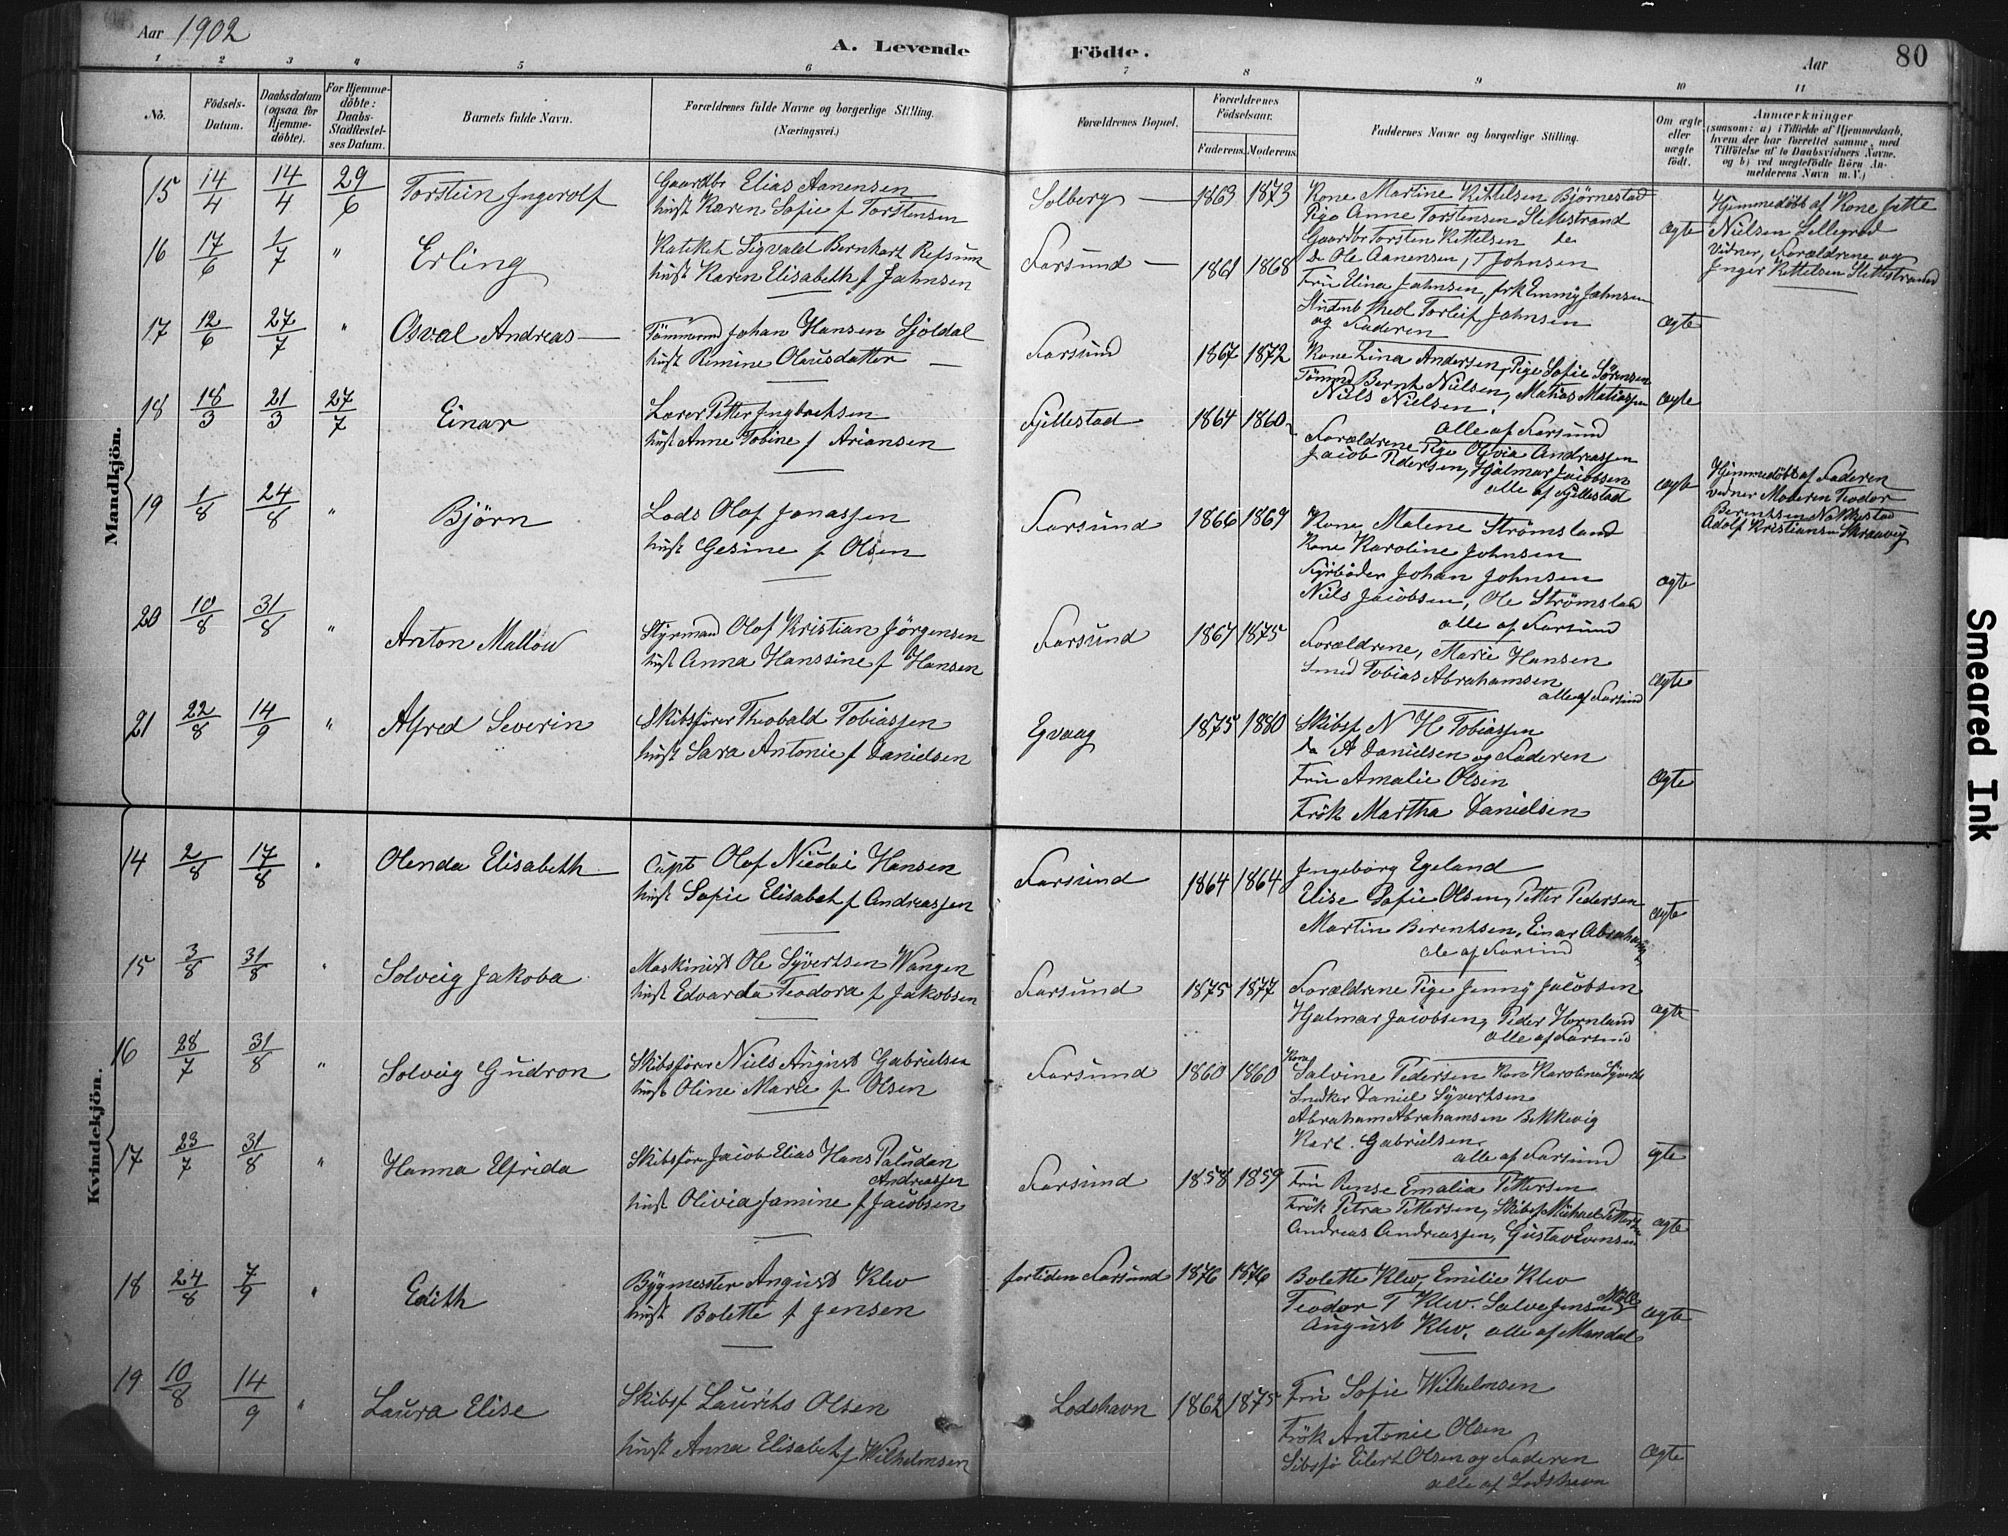 Aar 1902
A. Levende Födte.
Aar
80
1 2 3 4 5 6 7 8 9 10 11
No.
Födsels-Datum.
Daabsdatum (ogsaa for Hjemme-döbte).
For Hjemme-döbte: Daabs-Stadfæstel-ses Datum.
Barnets fulde Navn.
Forældrenes fulde Navne og borgerlige Stilling. (Næringsvei.)
Forældrenes Bopæl.
Forældrenes Födselsaar.
Faderens. Moderens.
Faddernes Navne og borgerlige Stilling.
Om ægte eller uægte födt.
Anmærkninger
(saasom: a) i Tilfælde af Hjemmedaab, hvem der har forrettet samme, med Tilföielse af to Daabsvidners Navne. og b) ved uægtefödte Börn An-melderens Navn m. V.)
Mandkjön.
15 14/4 14/4 29/6 Torstein Ingerolf
Gaardbr Elias Aanensen
hust Karen Sofie f Torstensen
Solberg 1863 1873
Kone Martine Kittelsen Björnestad
Pige Anne Torstensen Slettestrand
Gaardbr Torsten Kettelsen do
do Ole Aanensen, T Johnsen
ægte
Hjemmedöbt af Kone Jitte
Nielsen Sellegrod
Vidner, Forældrene og
Inger Kittelsen Slettestrand
16 17/6 1/7 " Erling
Kateket Sigvald Bernhart Refsum
hust Karen Elisabeth f Jahnsen
Farsund 1861 1868
Fru Elina Jahnsen, frk Emmy Jahnsen
Student theol Torleif Jahnsen
og Faderen
ægte
17 12/6 27/7 " Osval Andreas
Tömmerm Johan Hansen Sjöldal
hust Remine Olausdatter
Farsund 1867 1872
Kone Lina Andersen, Pige Sofie Sörensen
Tömmd Bernt Nielsen, Matias Matiassen
Niels Nielsen.
alle af Farsund
ægte
18 18/3 21/3 27/7 Einar
Lærer Petter Ingbretsen
hust Anne Tobine f Ariansen
Fjellestad 1864 1860
Forældrene Pige Olevia Andreassen
Jacob Pedersen, Hjalmar Jacobsen
alle af Fjellestad
ægte
Hjemmedöbt af Faderen
vidner Moderen Teodor
Berentsen Nokkestad
Adolf Kristiansen Skraavig
19 1/8 24/8 " Björn
Lods Olaf Jonassen
hust Gesine f Olsen
Farsund 1866 1869
Kone Malene Strömsland
Kone Karoline Johnsen
Fyrböder Johan Johnsen
Niels Jacobsen, Ole Strömsland
alle af Farsund
ægte
20 10/8 31/8 " Anton Mallow
Styrmand Olaf Kristian Jörgensen
hust Anna Hanssine f Hansen
Farsund 1867 1875
Forældrene, Marie Hansen
Smed Tobias Abrahamsen
alle af Farsund
ægte
21 22/8 14/9 " Alfred Severin
Skibsförer Theobald Tobiassen
hust Sara Antonie f Danielsen
Egvaag 1875 1880
Skibsf N H Tobiassen
do A Danielsen og Faderen
Fru Amalie Olsen
Frök Martha Danielsen
ægte
Kvindekjön.
14 2/8 17/8 " Olenda Elisabeth
Cupt Olaf Nicolai Hansen
hust Sofie Elisabet f Andreassen
Farsund 1864 1864
Ingeborg Egeland
Elise Sofie Olsen, Petter Pedersen
Martin Berentsen, Einar Abrahams
alle af Farsund
ægte
15 3/8 31/8 " Solveig Jakoba
Maskinist Ole Syvertsen Wangen
hust Edvarda Teodora f Jakobsen
Farsund 1875 1877
Forældrene Pige Jenny Jacobsen
Hjalmar Jacobsen, Peder Hornland
alle af Farsund
ægte
16 28/7 31/8 " Solveig Gudron
Skibsförer Niels August Gabrielsen
hust Oline Marie f Olsen
Farsund 1860 1860
Kone Salvine Pedersen Kone Karoline Syverts
Snedker Daniel Syvertsen
Abraham Abrahamsen Bekkevig
Karl Gabrielsen
alle af Farsund
ægte
17 23/7 31/8 " Hanna Elfrida
Skibsför Jacob Elias Hans Paludan
Andreassen
hust Olivia Jamine f Jacobsen
Farsund 1858 1859
Fru Rense Emalia Pettersen
Frök Petra Pettersen, Skibsf Michael Petters
Andreas Andreassen, Gustav Evensen
ægte
18 24/8 7/9 " Edith
Bygmesster August Klev
hust Bolette f Jensen
fortiden Farsund 1876 1876
Bolette Klev, Emilie Klev
Teodor T Klev. Salve Jensen
August Klev, alle af Mandal
ægte
19 10/8 14/9 " Laura Elise
Skibsf Laurits Olsen
hust Anna Elisabet f Wilhelmsen
Lodshavn 1862 1875
Fru Sofie Wilhelmsen
Frök Antonie Olsen
Sibsfö Eilert Olsen og Faderen
alle af Lodshavn
ægte
Smeared Ink